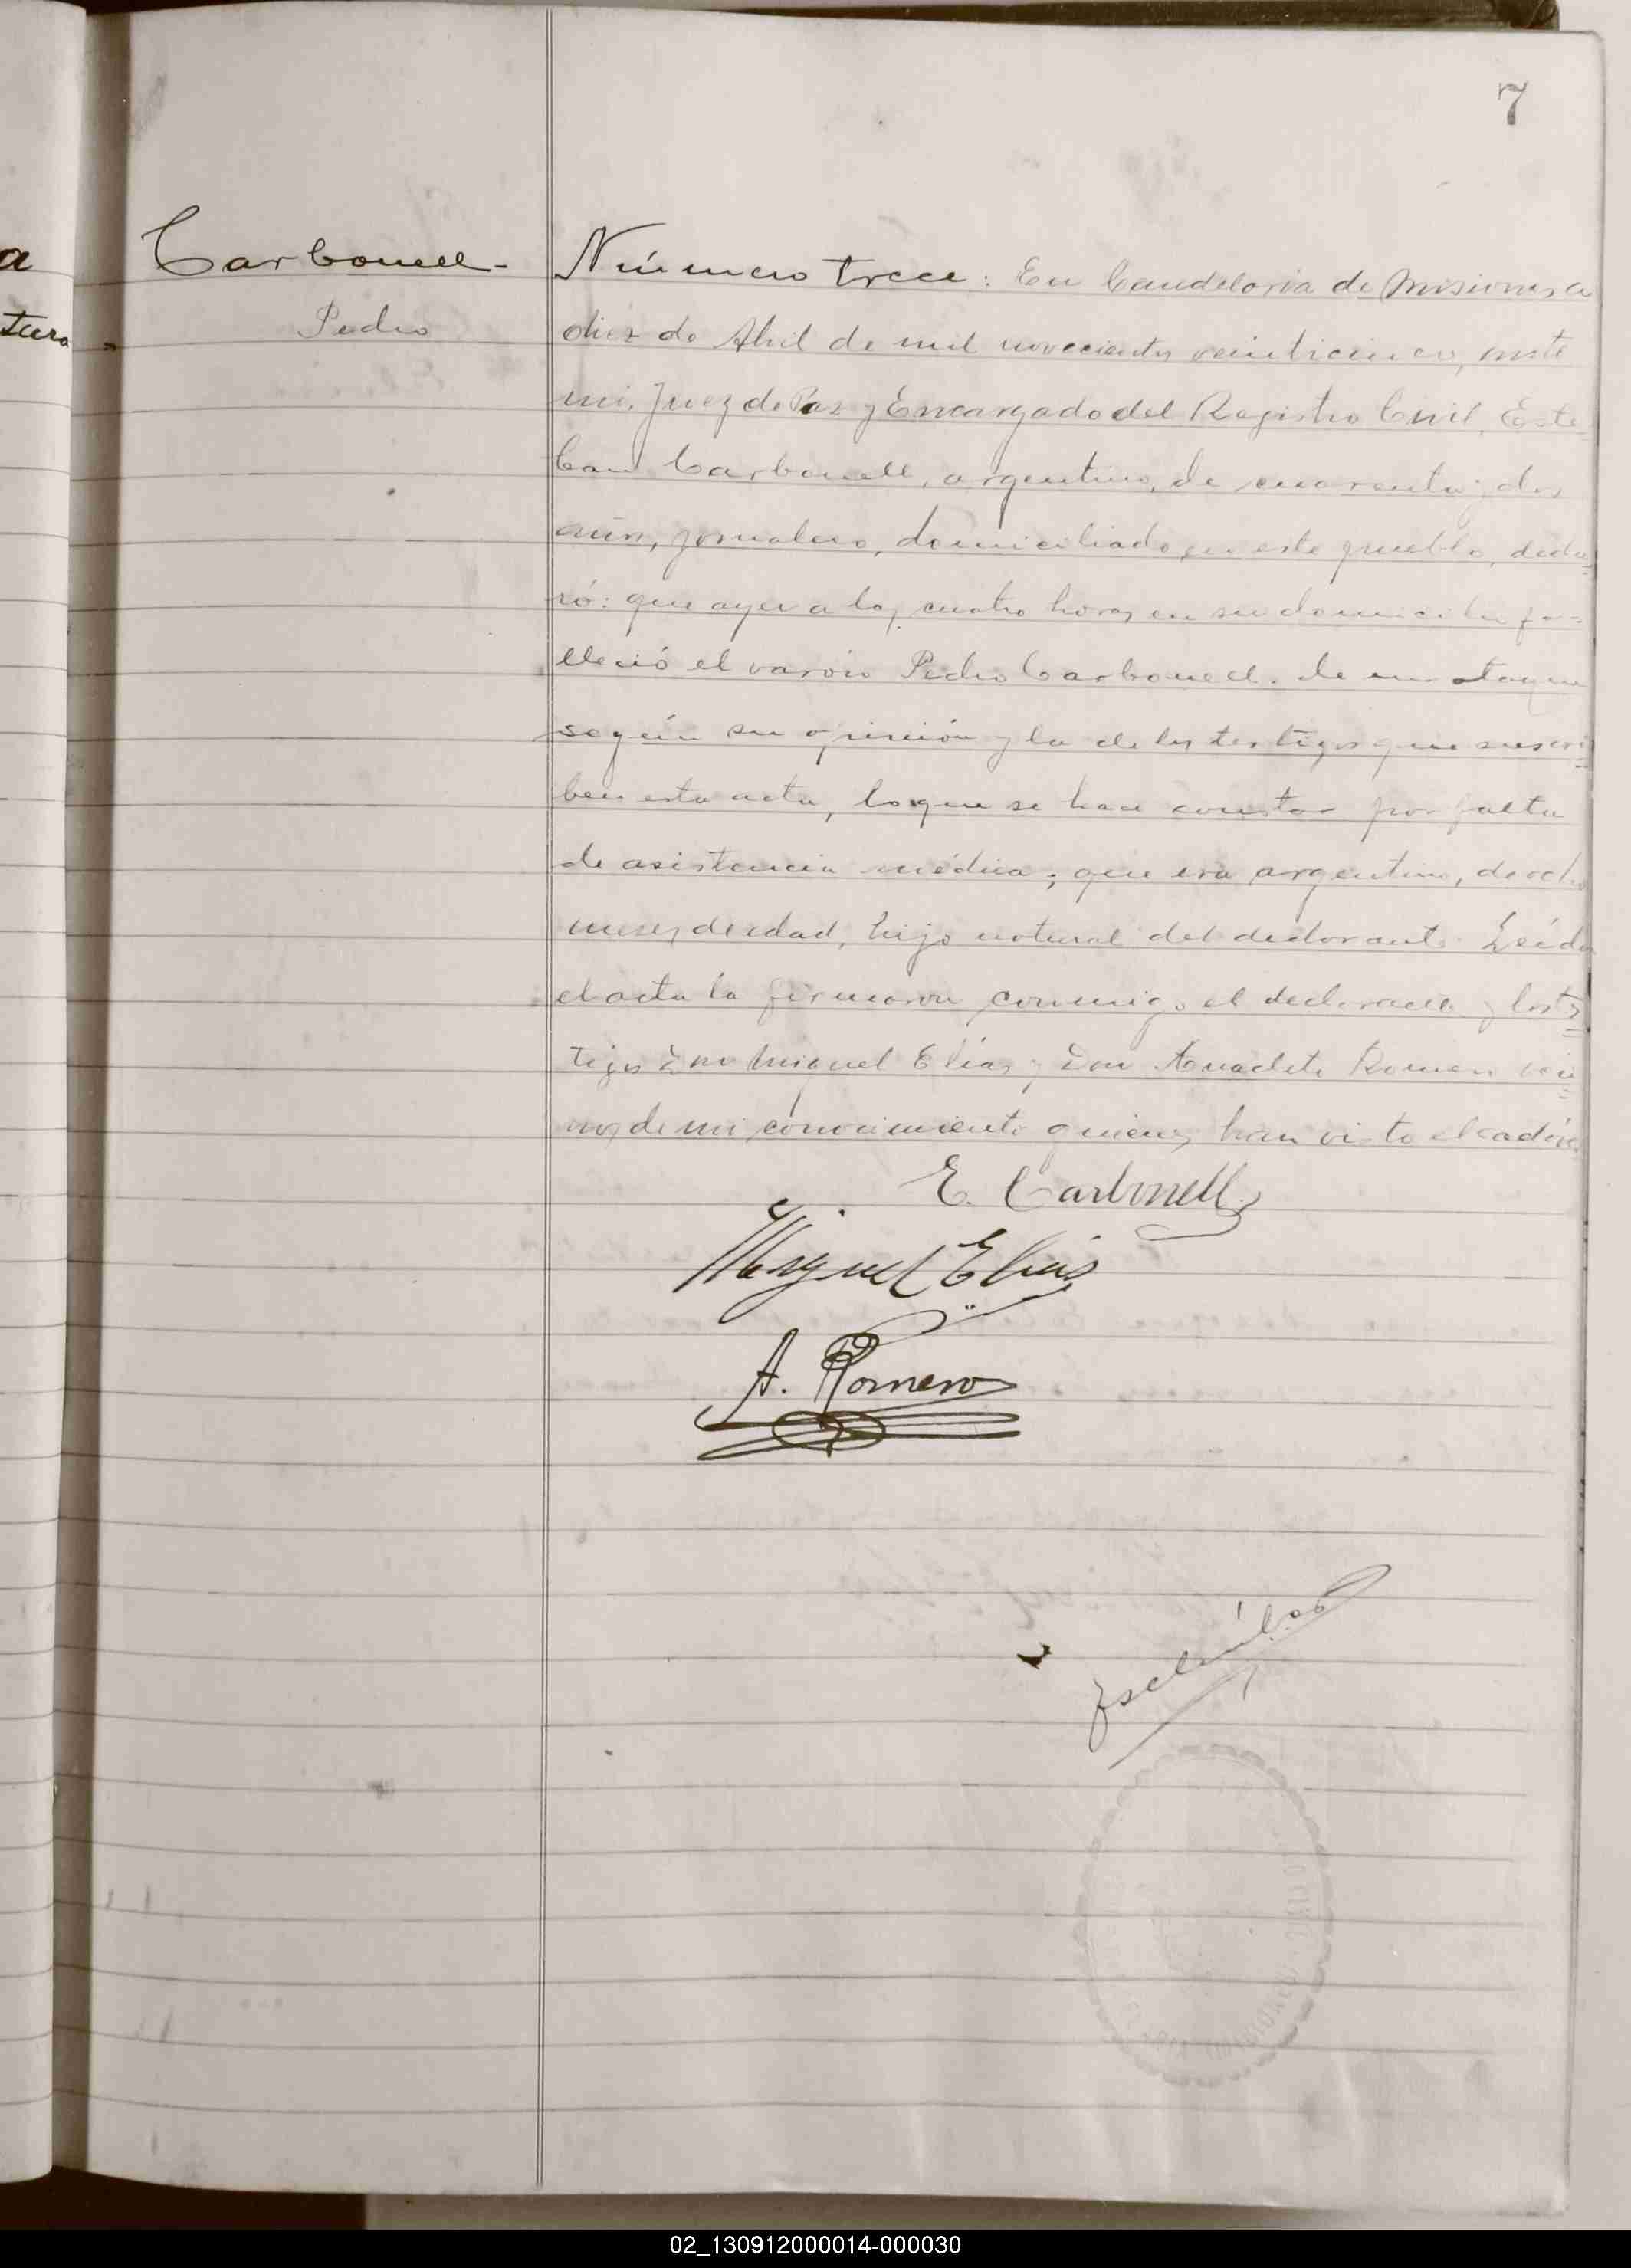 7
a
tura
Carbonell
Pedro
Número trece: En Candelaria de Misiones, a
diez de Abril de mil novecientos veinticinco, ante
mi, Juez de Paz y Encargado del Registro Civil, Este-
ban Carbonell, argentino, de cuarenta y dos
años, jornalero, domiciliado en este pueblo, decla=
ró: que ayer a las cuatro horas en su domicilio fa=
lleció el varón Pedro Carbonell, de un ataque
según su opinión y la de los testigos que suscri=
ben esta acta, lo que se hace constar por falta
de asistencia médica; que era argentino, de ocho
meses de edad, hijo natural del declarante. Leída
el acta la firmaron conmigo el declarante y los tes=
tigos Don Miguel Elías y Don Anacleto Romero veci=
nos de mi conocimiento quienes han visto el cadáver.
E. Carbonell
Miguel Elias
A. Romero
02_130912000014-000030